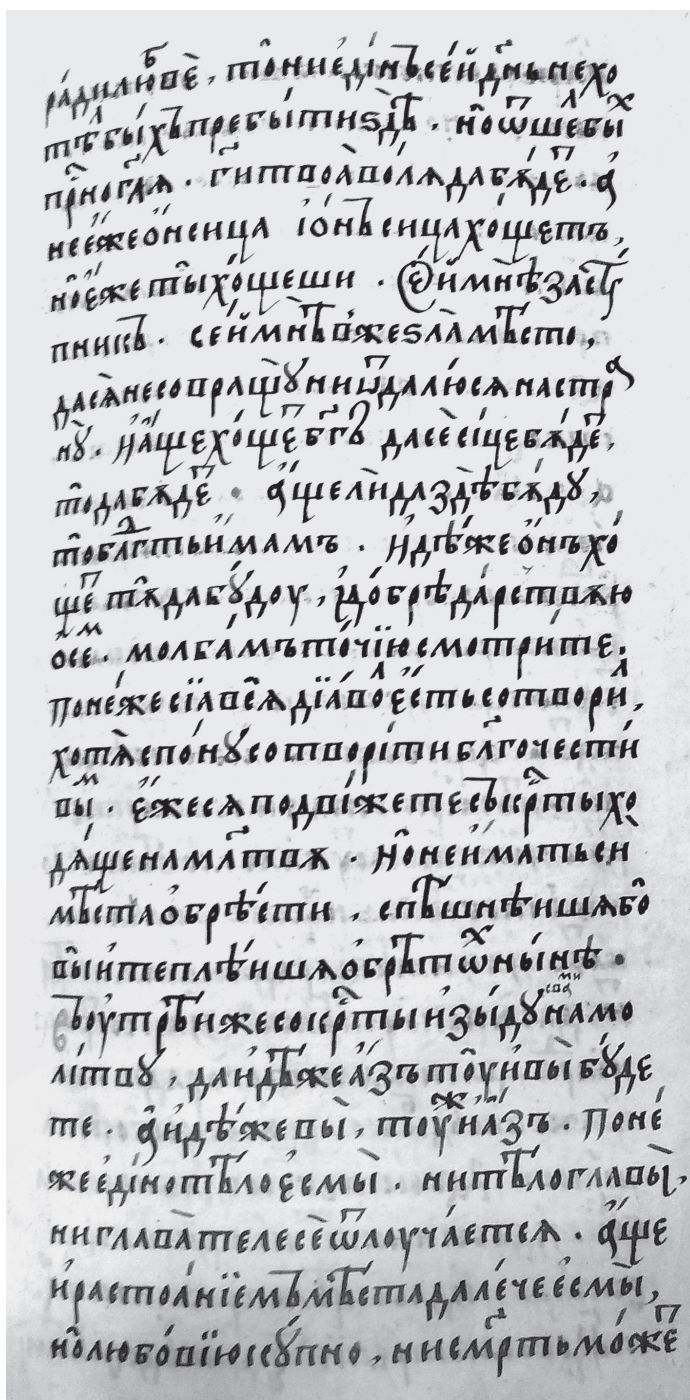 ра́дилю́бвѐ, то̂ниеди́нъсе́йдн҃ьнехо
тѣ́лбы́хъпребы́тиѕдѣ̀. но̂ѿше́лбы́х
пр҃ногл҃я. гн҃итвоа̀во́лѧдабѫ́де. а҆́
нее́жео́ненцаі҆о҆́нъенцахо́щетъ,
но̂е҆́жеты̂хо́щеши. Ѻ҆́ймнѣ́за́ст
пникъ. се́ймнѣв҃жеѕла̀мѣ́сто,
дасѧ̀несовращꙋ̀ниѿдалю́сянастра
нꙋ̀. а҆́щехо́щетбг҃ъдасѐси́цебѫ́де,
то̂дабѫ́де. а҆́щелѝдаздѣ̀бѫ́дꙋ,
то̂бл҃гтьи҆́мамъ. и҆дѣ́жео҆́нъхо́
щетта̂дабꙋ́доу, и҆до́брѣда́рствꙋю
осем. молба́мъто́чїюсмотри́те.
поне́жесїа̀всѧ̂дїа́волее҆́стьсотвори́л,
хотѧ̀спо́нꙋсотвори́тибл҃гочести́
вым. е҆́жесяподви́жетесъкрⷭ҇тыхо
дѧ́щенамл҃твꙋ. но̂неи҆́матьсѝ
мѣ́стаѻ҆брѣ́сти, спѣ́шнѣишѧбо̂
вы̂и҆теплѣ́ишѧѻ҆брѣ́тѡхны́нѣ.
Въоу҆́трѣижесокрⷭ҇тыи҆зы́дꙋсваминамо
ли́твꙋ, даи҆дѣ́жеа҆́зъто̂уи҆вы̀бꙋ́де
те. а҆и҆дѣ́жевы̀, тоу҆́жиа҆́зъ. Поне́
жееди́нотѣ́лое҆смы̀. нитѣ́логлавы̀,
ниглава̀телесѐѿлоуча́ется. а҆́ще
и҆растоѧ́нїемъмѣ́стадале́чее҆смы̀,
но̂любо́вїюкꙋ́пно, нисм҃ртьмо́же